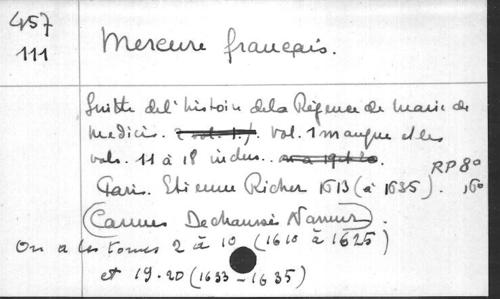 457
111
Mercure français.
Suitte de l'histoire de la Régence de Marie de
Medicis. vol. 1 manque et les
vols. 11 à 18 inclus.
RP 8º
Paris. Etienne Richer 1613 (à 1635).
(Carmes Dechaussés Namur)
On a les tomes 2 à 10 (1610 à 1625)
et 19-20 (1633-1635)